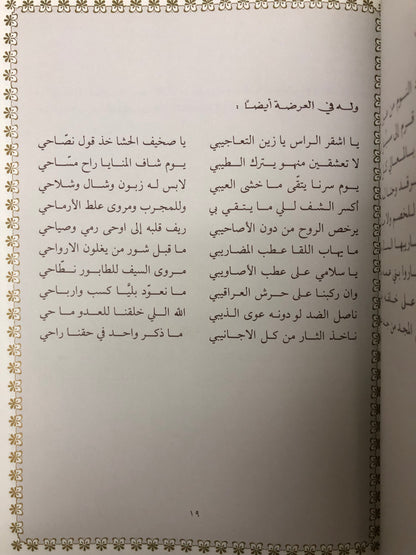 وله في العرضة أيضاً :
يا اشقر الراس يا زين التعاجيبي يا صخيف الحشا خذ قول نصّاحي
لا تعشقين منهو يترك الطيبي يوم شاف المنايا راح مسّاحي
يوم سرنا يتقّى ما خشى العيبي لابس له زبون وشال وشلاحي
أكسر الشف للي ما ينتقي بي وللمجرب ومروى علط الأرماحي
يرخص الروح من دون الأصاحيبي ريف قلبه إلى اوحى رمي وصياحي
ما يهاب اللقا عطب المضاريبي ما قبل شور من يغلون الارواحي
يا سلامي على عطب الأصاويبي مروى السيف للطابور نطّاحي
وان ركبنا على حرش العراقيبي ما نعوّد بليّا كسب وارباحي
ناصل الضد لو دونه عوى الذيبي الله اللي خلقنا للعدو ما حي
ناخذ الثار من كل الاجانيبي ما ذكر واحد في حقنا راحي
١٩